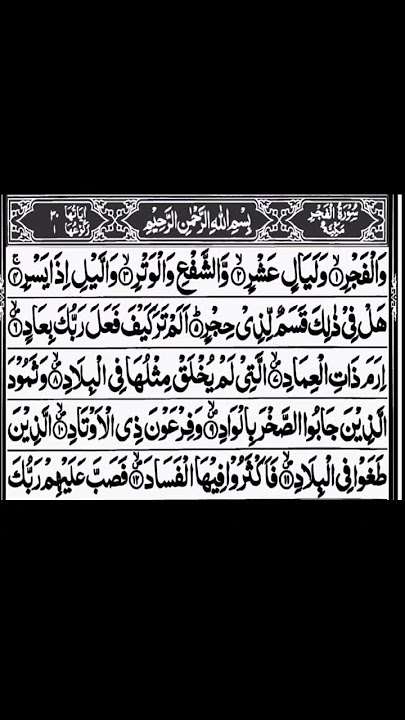 سُوْرَةُ الْفَجْرِ مَكِّيَّةٌ بِسْمِ اللّٰهِ الرَّحْمٰنِ الرَّحِيْمِ اٰيَاتُهَا ٣٠ رُكُوْعُهَا ١
وَالْفَجْرِ ۝١ وَلَيَالٍ عَشْرٍ ۝٢ وَّالشَّفْعِ وَالْوَتْرِ ۝٣ وَالَّيْلِ اِذَا يَسْرِ ۝٤
هَلْ فِيْ ذٰلِكَ قَسَمٌ لِّذِيْ حِجْرٍ ۝٥ اَلَمْ تَرَ كَيْفَ فَعَلَ رَبُّكَ بِعَادٍ ۝٦
اِرَمَ ذَاتِ الْعِمَادِ ۝٧ الَّتِيْ لَمْ يُخْلَقْ مِثْلُهَا فِي الْبِلَادِ ۝٨ وَثَمُوْدَ
الَّذِيْنَ جَابُوا الصَّخْرَ بِالْوَادِ ۝٩ وَفِرْعَوْنَ ذِي الْاَوْتَادِ ۝١٠ الَّذِيْنَ
طَغَوْا فِي الْبِلَادِ ۝١١ فَاَكْثَرُوْا فِيْهَا الْفَسَادَ ۝١٢ فَصَبَّ عَلَيْهِمْ رَبُّكَ